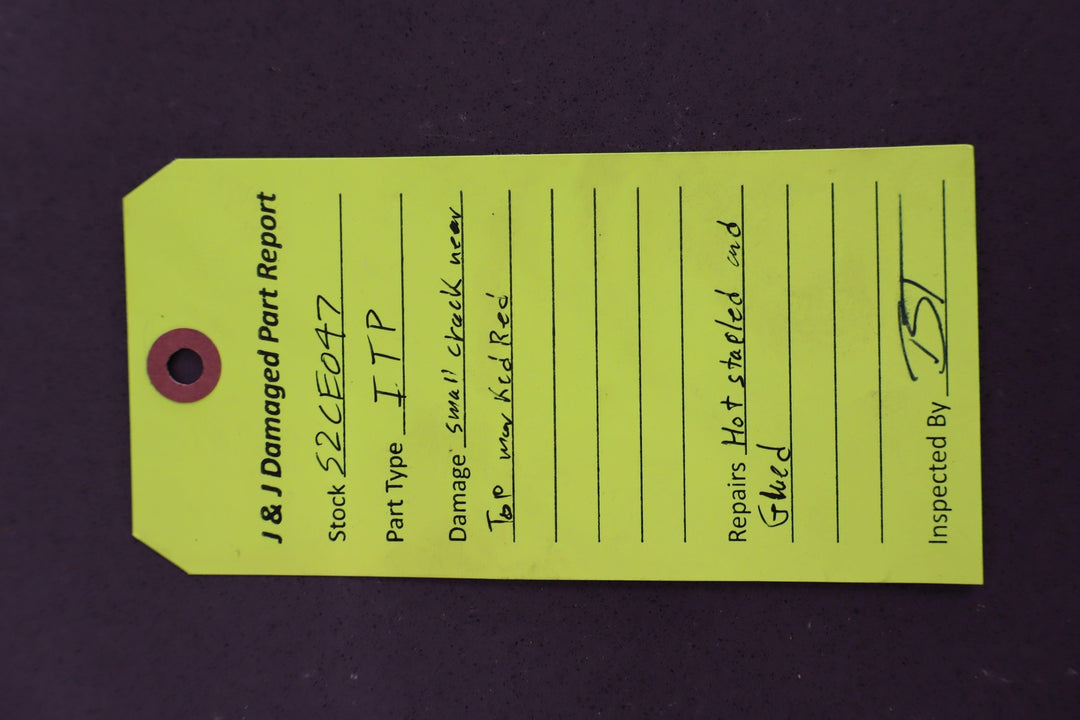 J & J Damaged Part Report
Stock S2CE047
Part Type ITP
Damage small crack near
Top marked Red
Repairs Hot stapled and
Glued
Inspected By